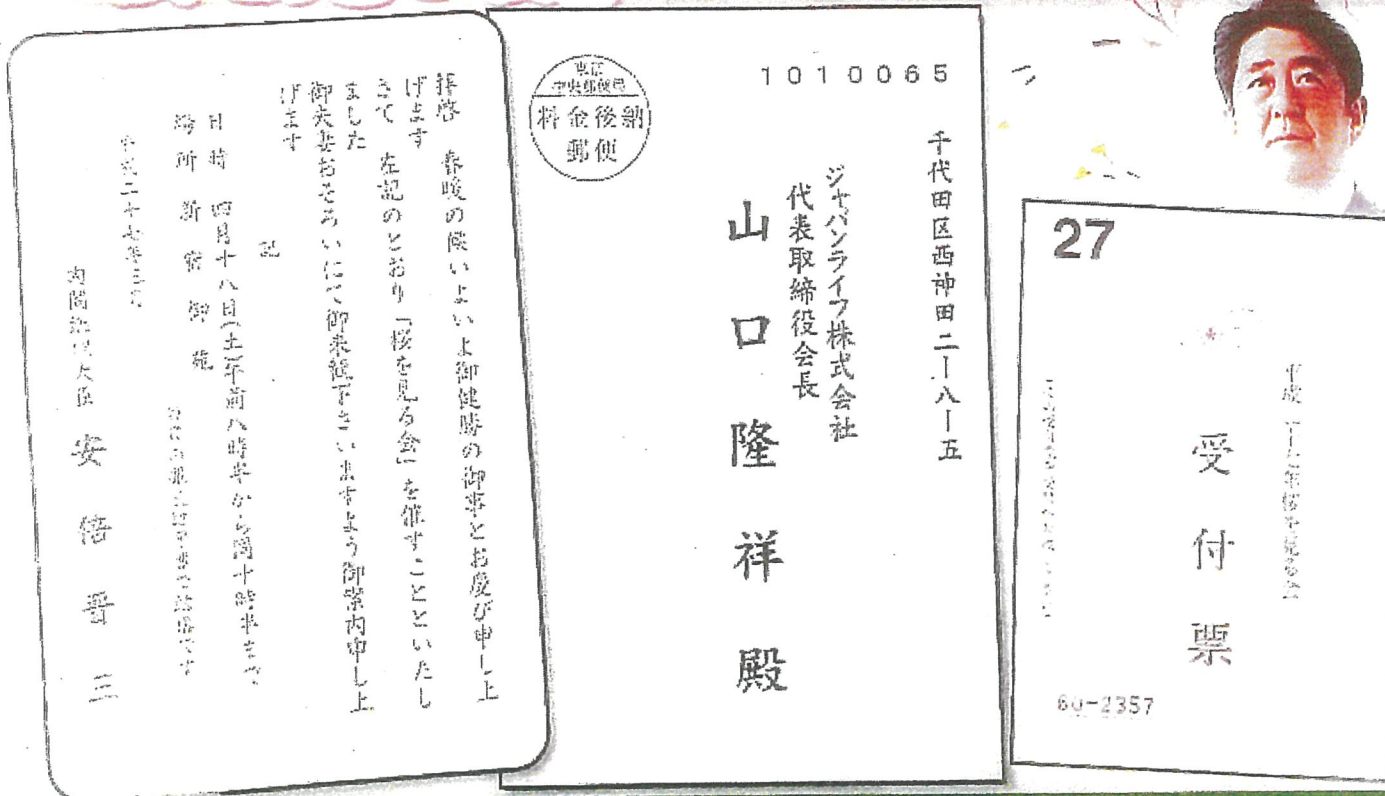 拝啓 春暖の候いよいよ御健勝の御事とお慶び申し上
げます
さて 左記のとおり「桜を見る会」を催すことといたし
ました
御夫妻おそろいにて御来観下さいますよう御案内申し上
げます
記
日時 四月十八日(土)午前八時半から同十時半まで
場所 新宿御苑
平成二十七年三月
内閣総理大臣 安倍晋三
東京
中央郵便局
料金後納
郵便
1010065
千代田区西神田二ー八ー五
ジャパンライフ株式会社
代表取締役会長
山口隆祥殿
27
平成二十七年桜を見る会
受付票
60-2357